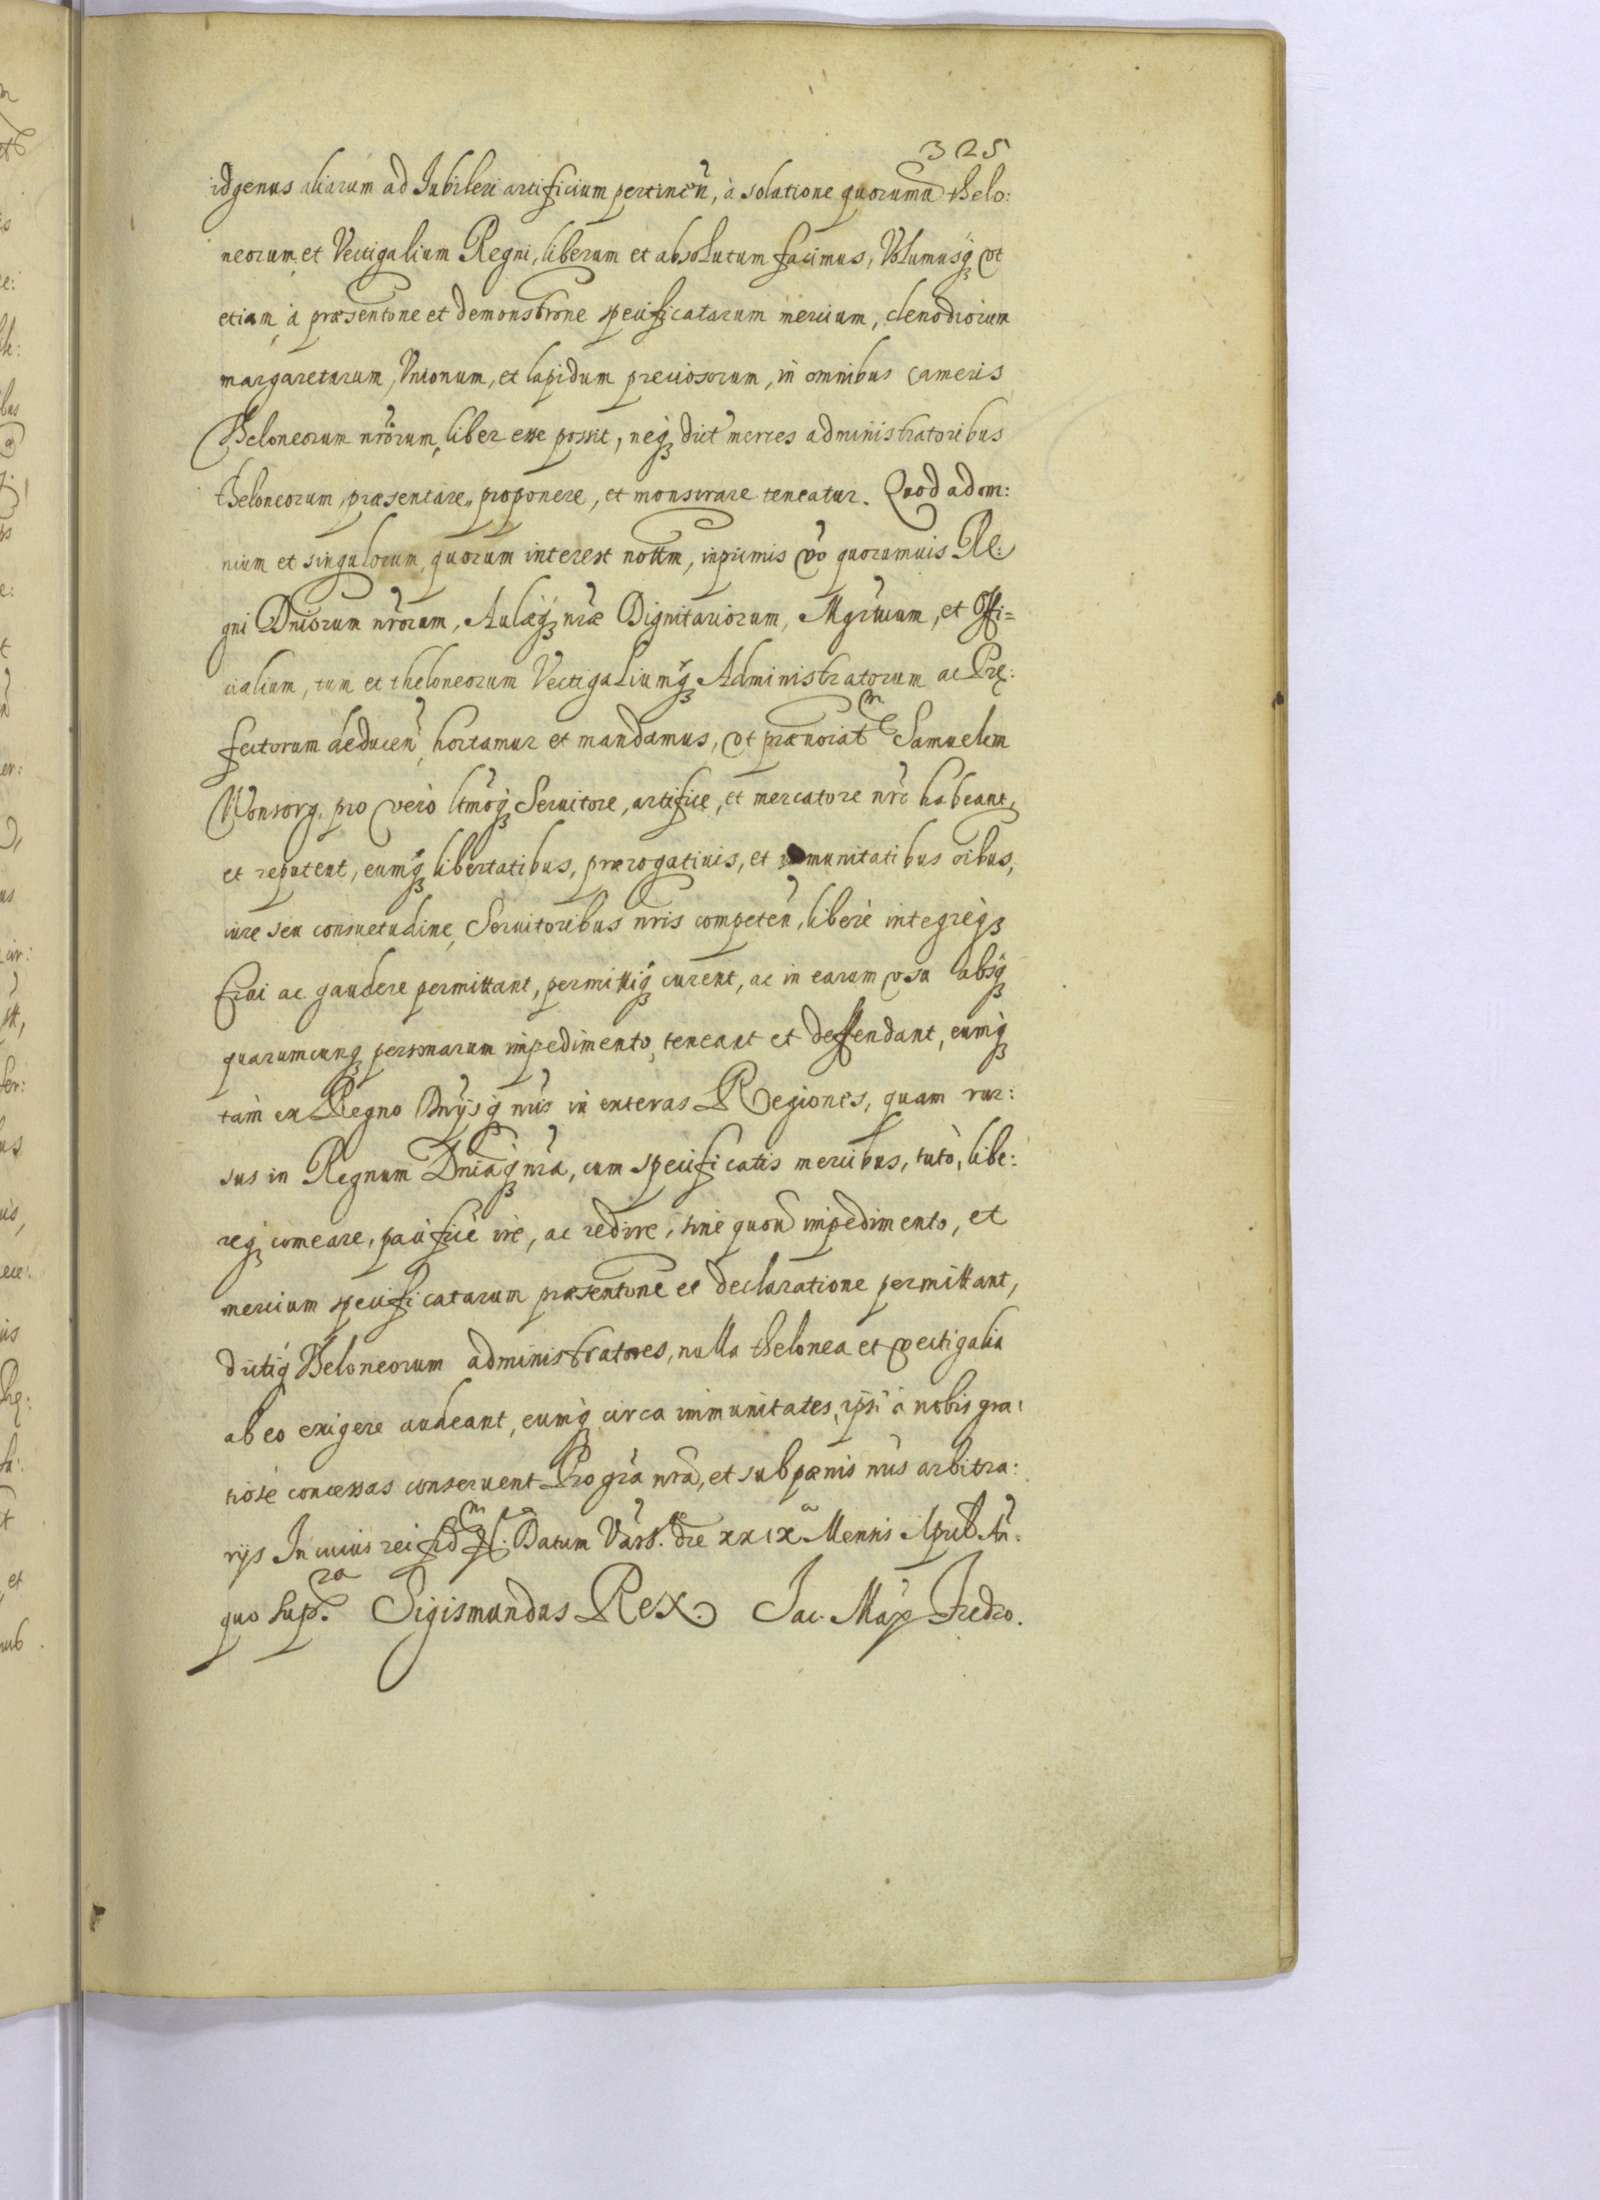 325
idgenus aliarum ad Jubileri artificium pertinen̄, à solutione quorumū thelo:
neorum, et Vectigalium Regni, liberum et absolutum facimus, Volumusq́ȝ vt
etiam à præsentone et demonstrone specificatarum mercium, clenodiorum
margaretarum, Vnionum, et lapidum preciosorum, in omnibus cameris
Theloneorum nr̄orum, liber esse possit, neqȝ dict merces administratoribus
theloneorum, præsentare, proponere, et monstrare teneatur. Quod ad om:
nium et singulorum, quorum interest nottm, inprimis v̄o quorumuis Re:
gni Dniorum nr̄orum, Aulæq́ȝ nr̄æ Dignitariorum, Mgr̄tuum, et Offi=
cialium, tum et theloneorum Vectigaliumq́ȝ Administratorum ac Prę:
fectorum deducen̄, hortamur et mandamus, vt prænoiatm Samuelem
Wonsorg, pro vero ltmoq́ȝ Seruitore, artifice, et mercatore nr̄o habeant,
et reputent, eumq́ȝ libertatibus, prærogatiuis, et immunitatibus oibus,
iure seu consuetudine, Seruitoribus nris competen̄, liberè integreq́ȝ
frui ac gaudere permittant, permittiq́ȝ curent, ac in earum vsu absq́ȝ
quarumcunqȝ personarum impedimento, teneant et deffendant, eumq́ȝ
tam ex Regno Dnijsq́ȝ nris in exteras Regiones, quam rur:
sus in Regnum Dniaq́ȝ nr̄a, cum specificatis mercibus, tutò, libe:
reqȝ comeare, pacifice ire, ac redire, sine quou impedimento, et
mercium specificatarum præsentone et declaratione permittant,
dictiq́ȝ Theloneorum administratores, nulla thelonea et vectigalia
ab eo exigere audeant, eumq́ȝ circa immunitates, ipsi à nobis gra:
tiose concessas conseruent Pro gr̄a nr̄a, et sub pænis nris arbitra:
rijs In cuius rei fidm Datum Vars. die xxixa Mensis April An̄.
quo supra. Sigismundus Rex. Jac. Max Fredro.